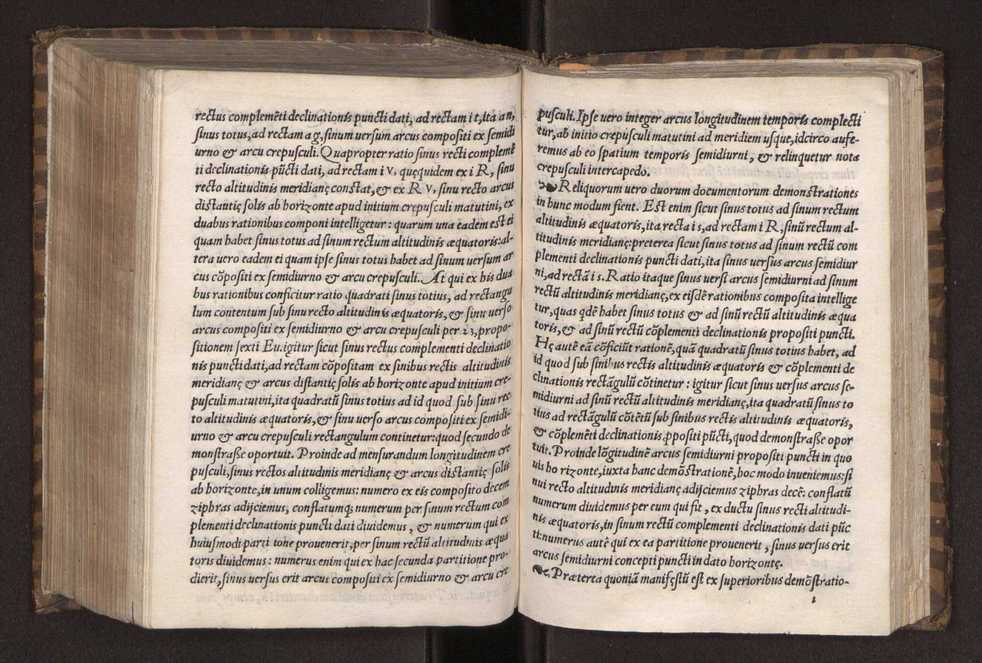 rectus complemēti declinationis puncti dati, ad rectam i t, ita a n,
sinus totus, ad rectam a g, sinum versum arcus compositi ex semidi
urno & arcu crepusculi. Quapropter ratio sinus recti complemē
ti declinationis pūcti dati, ad rectam i v. quęquidem ex i R, sinu
recto altitudinis meridianę constat, & ex R v. sinu recto arcus
distantię solis ab horizonte apud initium crepusculi matutini, ex
duabus rationibus componi intelligetur: quarum una eadem est ei
quam habet sinus totus ad sinum rectum altitudinis æquatoris: al-
tera uero eadem ei quam ipse sinus totus habet ad sinum uersum ar
cus cōpositi ex semidiurno & arcu crepusculi. At qui ex his dua
bus rationibus conficitur ratio quadrati sinus totius, ad rectangu
lum contentum sub sinu recto altitudinis æquatoris, & sinu uerso
arcus compositi ex semidiurno & arcu crepusculi per 23, propo-
sitionem sexti Eu. igitur sicut sinus rectus complementi declinatio
nis puncti dati, ad rectam cōpositam ex sinibus rectis altitudinis
meridianę & arcus distantię solis ab horizonte apud initium cre-
pusculi matutini, ita quadratū sinus totius ad id quod sub sinu rec-
to altitudinis æquatoris, & sinu uerso arcus compositi ex semidi-
urno & arcu crepusculi rectangulum continetur: quod secundo de
monstrasse oportuit. Proinde ad mensurandum longitudinem cre
pusculi, sinus rectos altitudinis meridianę & arcus distantię solis
ab horizonte, in unum colligemus: numero ex eis composito decem
ziphras adijciemus, conflatumq; numerum per sinum rectum com
plementi declinationis puncti dati diuidemus, & numerum qui ex
huiusmodi parti tone prouenerit, per sinum rectū altitudinis æqua
toris diuidemus: numerus enim qui ex hac secunda partitione pro-
dierit, sinus uersus erit arcus compositi ex semidiurno & arcu cre
pusculi. Ipse uero integer arcus longitudinem temporis complecti
tur, ab initio crepusculi matutini ad meridiem usque, idcirco aufe-
remus ab eo spatium temporis semidiurni, & relinquetur nota
crepusculi intercapedo.
Reliquorum uero duorum documentorum demonstrationes
in hunc modum fient. Est enim sicut sinus totus ad sinum rectum
altitudinis æquatoris, ita recta i s, ad rectam i R, sinū rectum al-
titudinis meridianę: preterea sicut sinus totus ad sinum rectū com
plementi declinationis puncti dati, ita sinus versus arcus semidiur
ni, ad rectā i s. Ratio itaque sinus uersi arcus semidiurni ad sinum
rectū altitudinis meridianę, ex eisdē rationibus composita intellige
tur, quas qdē habet sinus totus & ad sinū rectū altitudinis æqua
toris, & ad sinū rectū cōplementi declinationis propositi puncti.
Hę autē eā cōficiūt rationē, quā quadratū sinus totius habet, ad
id quod sub sinibus rectis altitudinis æquatoris & cōplementi de
clinationis rectāgulū cōtinetur: igitur sicut sinus versus arcus se-
midiurni ad sinū rectū altitudinis meridianę, ita quadratū sinus to
tius ad rectāgulū cōtētū sub sinibus rectis altitudinis æquatoris,
& cōplemēti declinationis, ppositi pūcti, quod demonstrasse opor
tuit. Proinde lōgitudinē arcus semidiurni propositi puncti in quo
uis ho rizonte, iuxta hanc demōstrationē, hoc modo inueniemus: si
nui recto altitudinis meridianę adijciemus ziphras decē: conflatū
numerum diuidemus per eum qui fit, ex ductu sinus recti altitudi-
nis æquatoris, in sinum rectū complementi declinationis dati pūc
ti: numerus autē qui ex ea partitione prouenerit, sinus uersus erit
arcus semidiurni concepti puncti in dato horizontę.
Præterea quoniā manifestū est ex superioribus demōstratio-
1